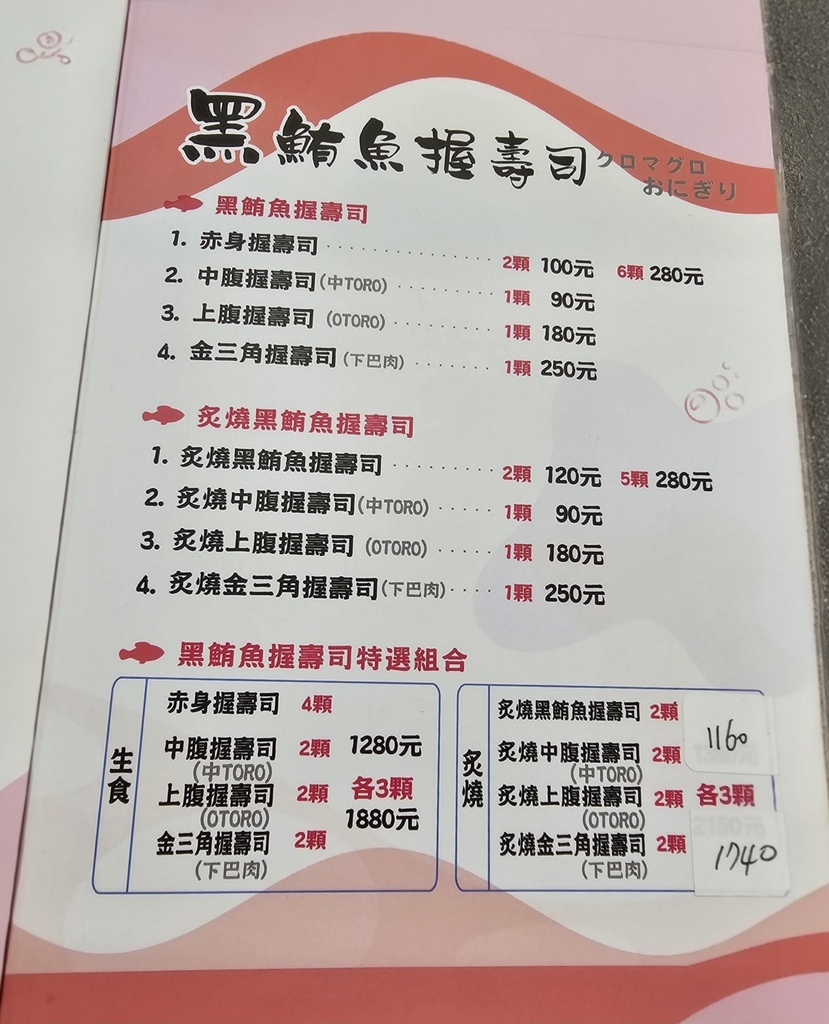 黑鮪魚握壽司 クロマグロ
おにぎり
黑鮪魚握壽司
1. 赤身握壽司 2顆 100元 6顆 280元
2. 中腹握壽司(中TORO) 1顆 90元
3. 上腹握壽司 (OTORO) 1顆 180元
4. 金三角握壽司(下巴肉) 1顆 250元
炙燒黑鮪魚握壽司
1. 炙燒黑鮪魚握壽司 2顆 120元 5顆 280元
2. 炙燒中腹握壽司(中TORO) 1顆 90元
3. 炙燒上腹握壽司 (OTORO) 1顆 180元
4. 炙燒金三角握壽司(下巴肉) 1顆 250元
黑鮪魚握壽司特選組合
生食
赤身握壽司 4顆
中腹握壽司 2顆 1280元
(中TORO)
上腹握壽司 2顆 各3顆
(OTORO) 1880元
金三角握壽司 2顆
(下巴肉)
炙燒
炙燒黑鮪魚握壽司 2顆
1160
炙燒中腹握壽司 2顆
(中TORO)
炙燒上腹握壽司 2顆 各3顆
(OTORO)
炙燒金三角握壽司 2顆 1740
(下巴肉)